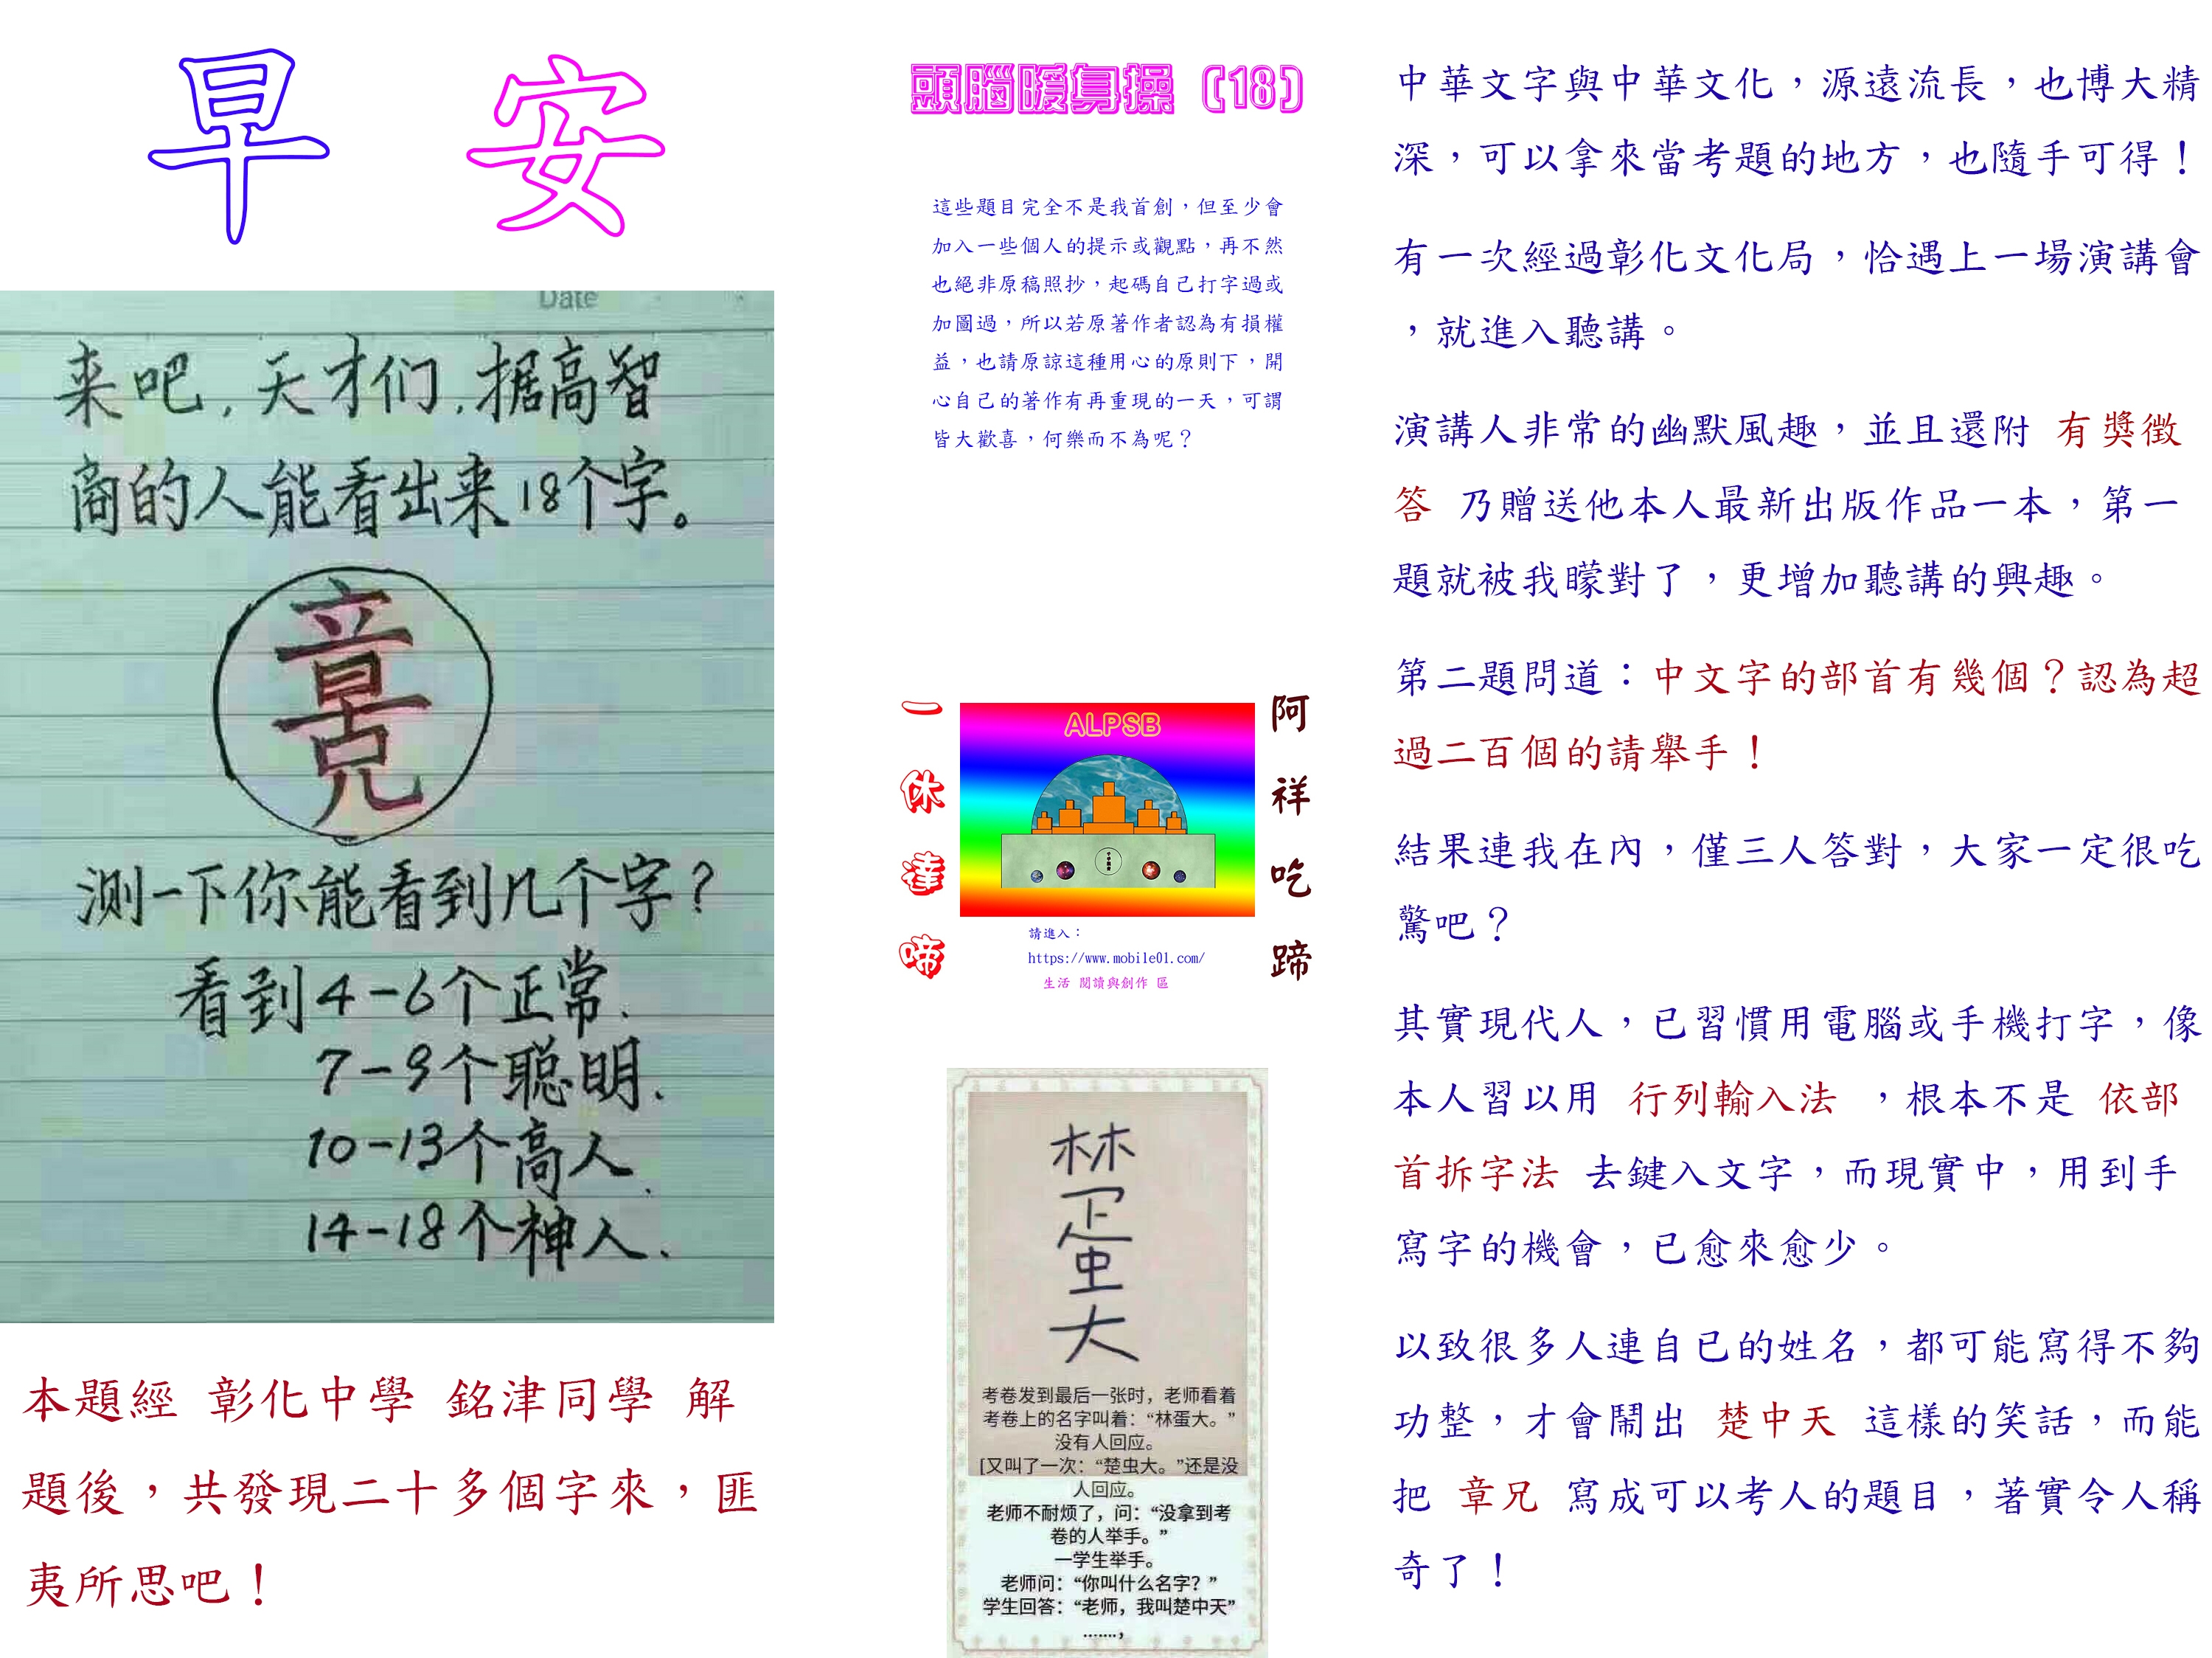 早 安
来吧，天才们，据高智
商的人能看出来18个字。
章
兄
测一下你能看到几个字？
看到4-6个正常．
7-9个聪明．
10-13个高人．
14-18个神人．
本題經 彰化中學 銘津同學 解
題後，共發現二十多個字來，匪
夷所思吧！
頭腦暖身操（18）
這些題目完全不是我首創，但至少會
加入一些個人的提示或觀點，再不然
也絕非原稿照抄，起碼自己打字過或
加圖過，所以若原著作者認為有損權
益，也請原諒這種用心的原則下，開
心自己的著作有再重現的一天，可謂
皆大歡喜，何樂而不為呢？
一休達啼
ALPSB
阿祥吃蹄
請進入：
https://www.mobile01.com/
生活 閱讀與創作 區
林
疋
虫
大
Date
考卷发到最后一张时，老师看着
考卷上的名字叫着：“林蛋大。”
没有人回应。
[又叫了一次：“楚虫大。”还是没
人回应。
老师不耐烦了，问：“没拿到考
卷的人举手。”
一学生举手。
老师问：“你叫什么名字？”
学生回答：“老师，我叫楚中天”
.......，
中華文字與中華文化，源遠流長，也博大精
深，可以拿來當考題的地方，也隨手可得！
有一次經過彰化文化局，恰遇上一場演講會
，就進入聽講。
演講人非常的幽默風趣，並且還附 有獎徵
答 乃贈送他本人最新出版作品一本，第一
題就被我矇對了，更增加聽講的興趣。
第二題問道：中文字的部首有幾個？認為超
過二百個的請舉手！
結果連我在內，僅三人答對，大家一定很吃
驚吧？
其實現代人，已習慣用電腦或手機打字，像
本人習以用 行列輸入法 ，根本不是 依部
首拆字法 去鍵入文字，而現實中，用到手
寫字的機會，已愈來愈少。
以致很多人連自己的姓名，都可能寫得不夠
功整，才會鬧出 楚中天 這樣的笑話，而能
把 章兄 寫成可以考人的題目，著實令人稱
奇了！